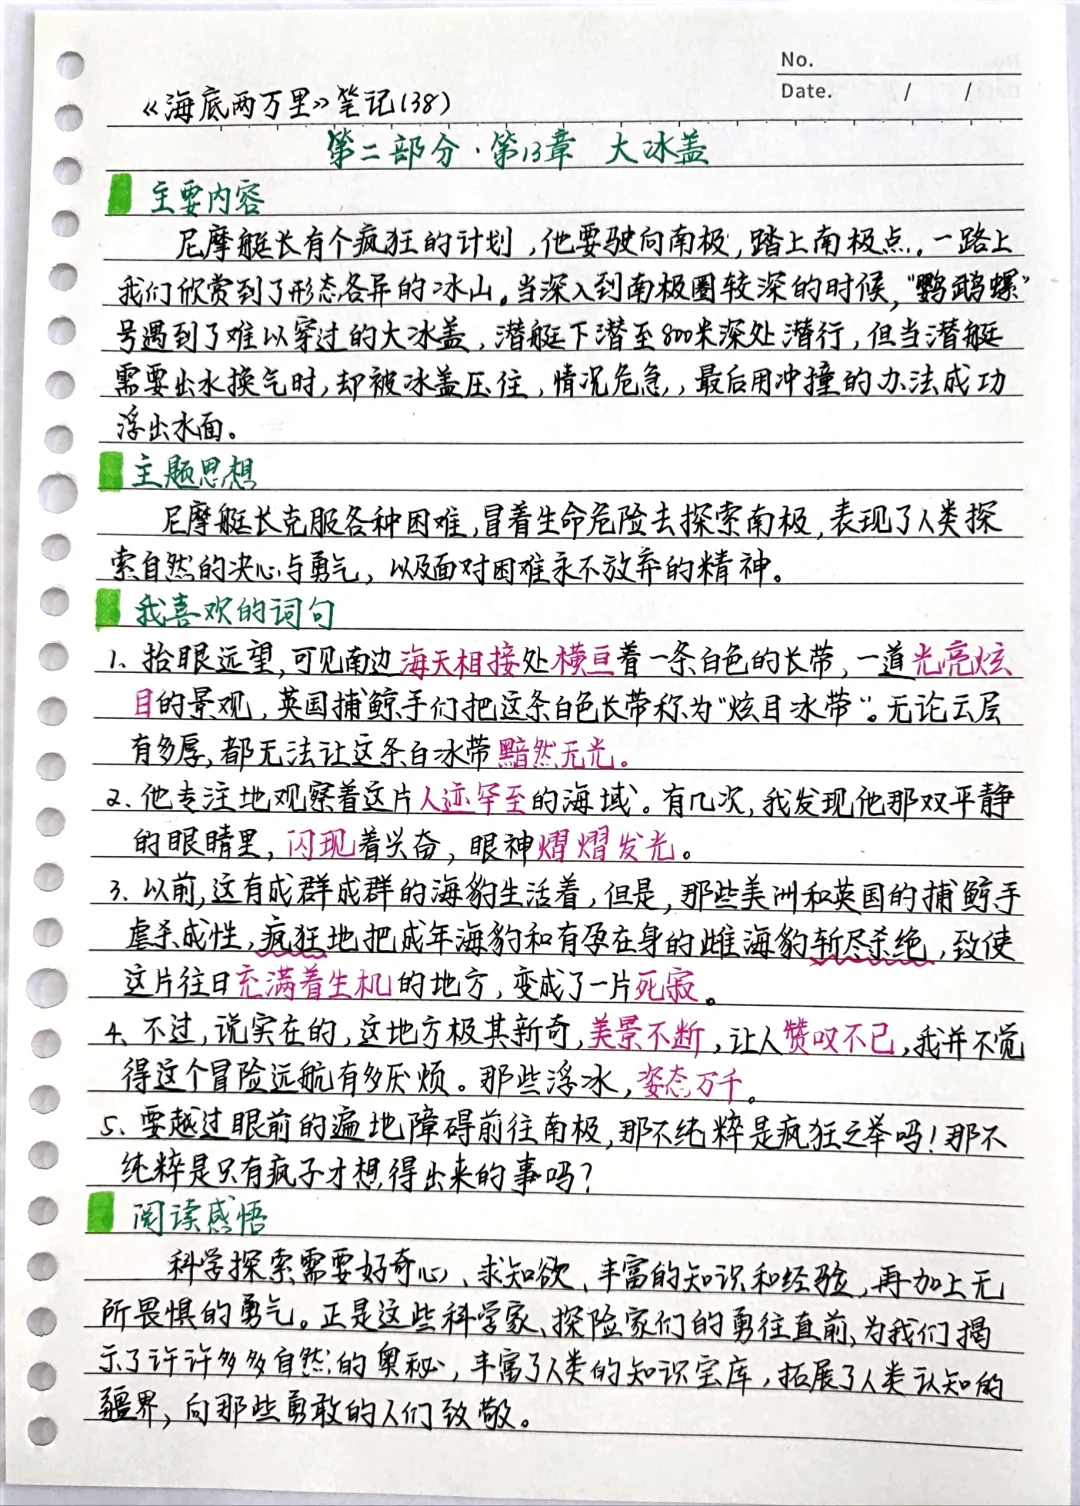 No.
Date. / /
《海底两万里》笔记(38)
第二部分·第13章 大冰盖
主要内容
尼摩艇长有个疯狂的计划，他要驶向南极，踏上南极点。一路上
我们欣赏到了形态各异的冰山。当深入到南极圈较深的时候，"鹦鹉螺"
号遇到了难以穿过的大冰盖，潜艇下潜至800米深处潜行，但当潜艇
需要出水换气时，却被冰盖压住，情况危急，最后用冲撞的办法成功
浮出水面。
主题思想
尼摩艇长克服各种困难，冒着生命危险去探索南极，表现了人类探
索自然的决心与勇气，以及面对困难永不放弃的精神。
我喜欢的词句
1、抬眼远望，可见南边海天相接处横亘着一条白色的长带，一道光亮炫
目的景观，英国捕鲸手们把这条白色长带称为"炫目冰带"。无论云层
有多厚，都无法让这条白冰带黯然无光。
2、他专注地观察着这片人迹罕至的海域。有几次，我发现他那双平静
的眼睛里，闪现着兴奋，眼神熠熠发光。
3、以前，这有成群成群的海豹生活着，但是，那些美洲和英国的捕鲸手
虐杀成性，疯狂地把成年海豹和有孕在身的雌海豹斩尽杀绝，致使
这片往日充满着生机的地方，变成了一片死寂。
4、不过，说实在的，这地方极其新奇，美景不断，让人赞叹不已，我并不觉
得这个冒险远航有多厌烦。那些浮冰，姿态万千。
5、要越过眼前的遍地障碍前往南极，那不纯粹是疯狂之举吗！那不
纯粹是只有疯子才想得出来的事吗？
阅读感悟
科学探索需要好奇心、求知欲、丰富的知识和经验，再加上无
所畏惧的勇气。正是这些科学家、探险家们的勇往直前，为我们揭
示了许许多多自然的奥秘，丰富了人类的知识宝库，拓展了人类认知的
疆界，向那些勇敢的人们致敬。